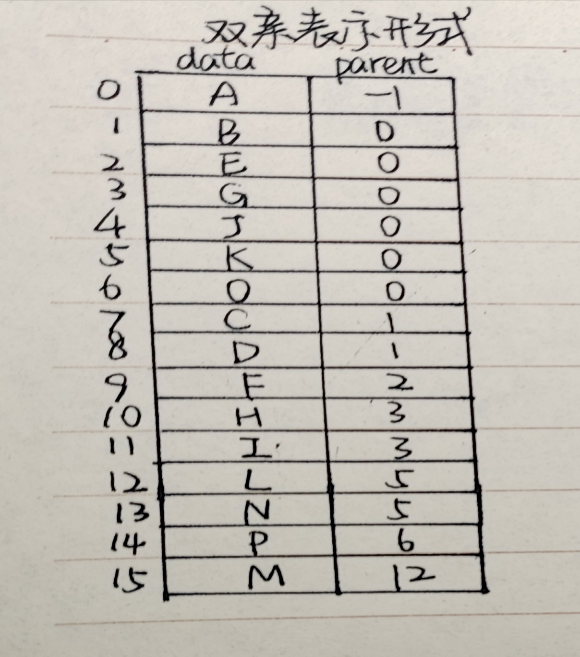 双亲表示形式
data parent
0 A -1
1 B 0
2 E 0
3 G 0
4 J 0
5 K 0
6 O 0
7 C 1
8 D 1
9 F 2
10 H 3
11 I 3
12 L 5
13 N 5
14 P 6
15 M 12